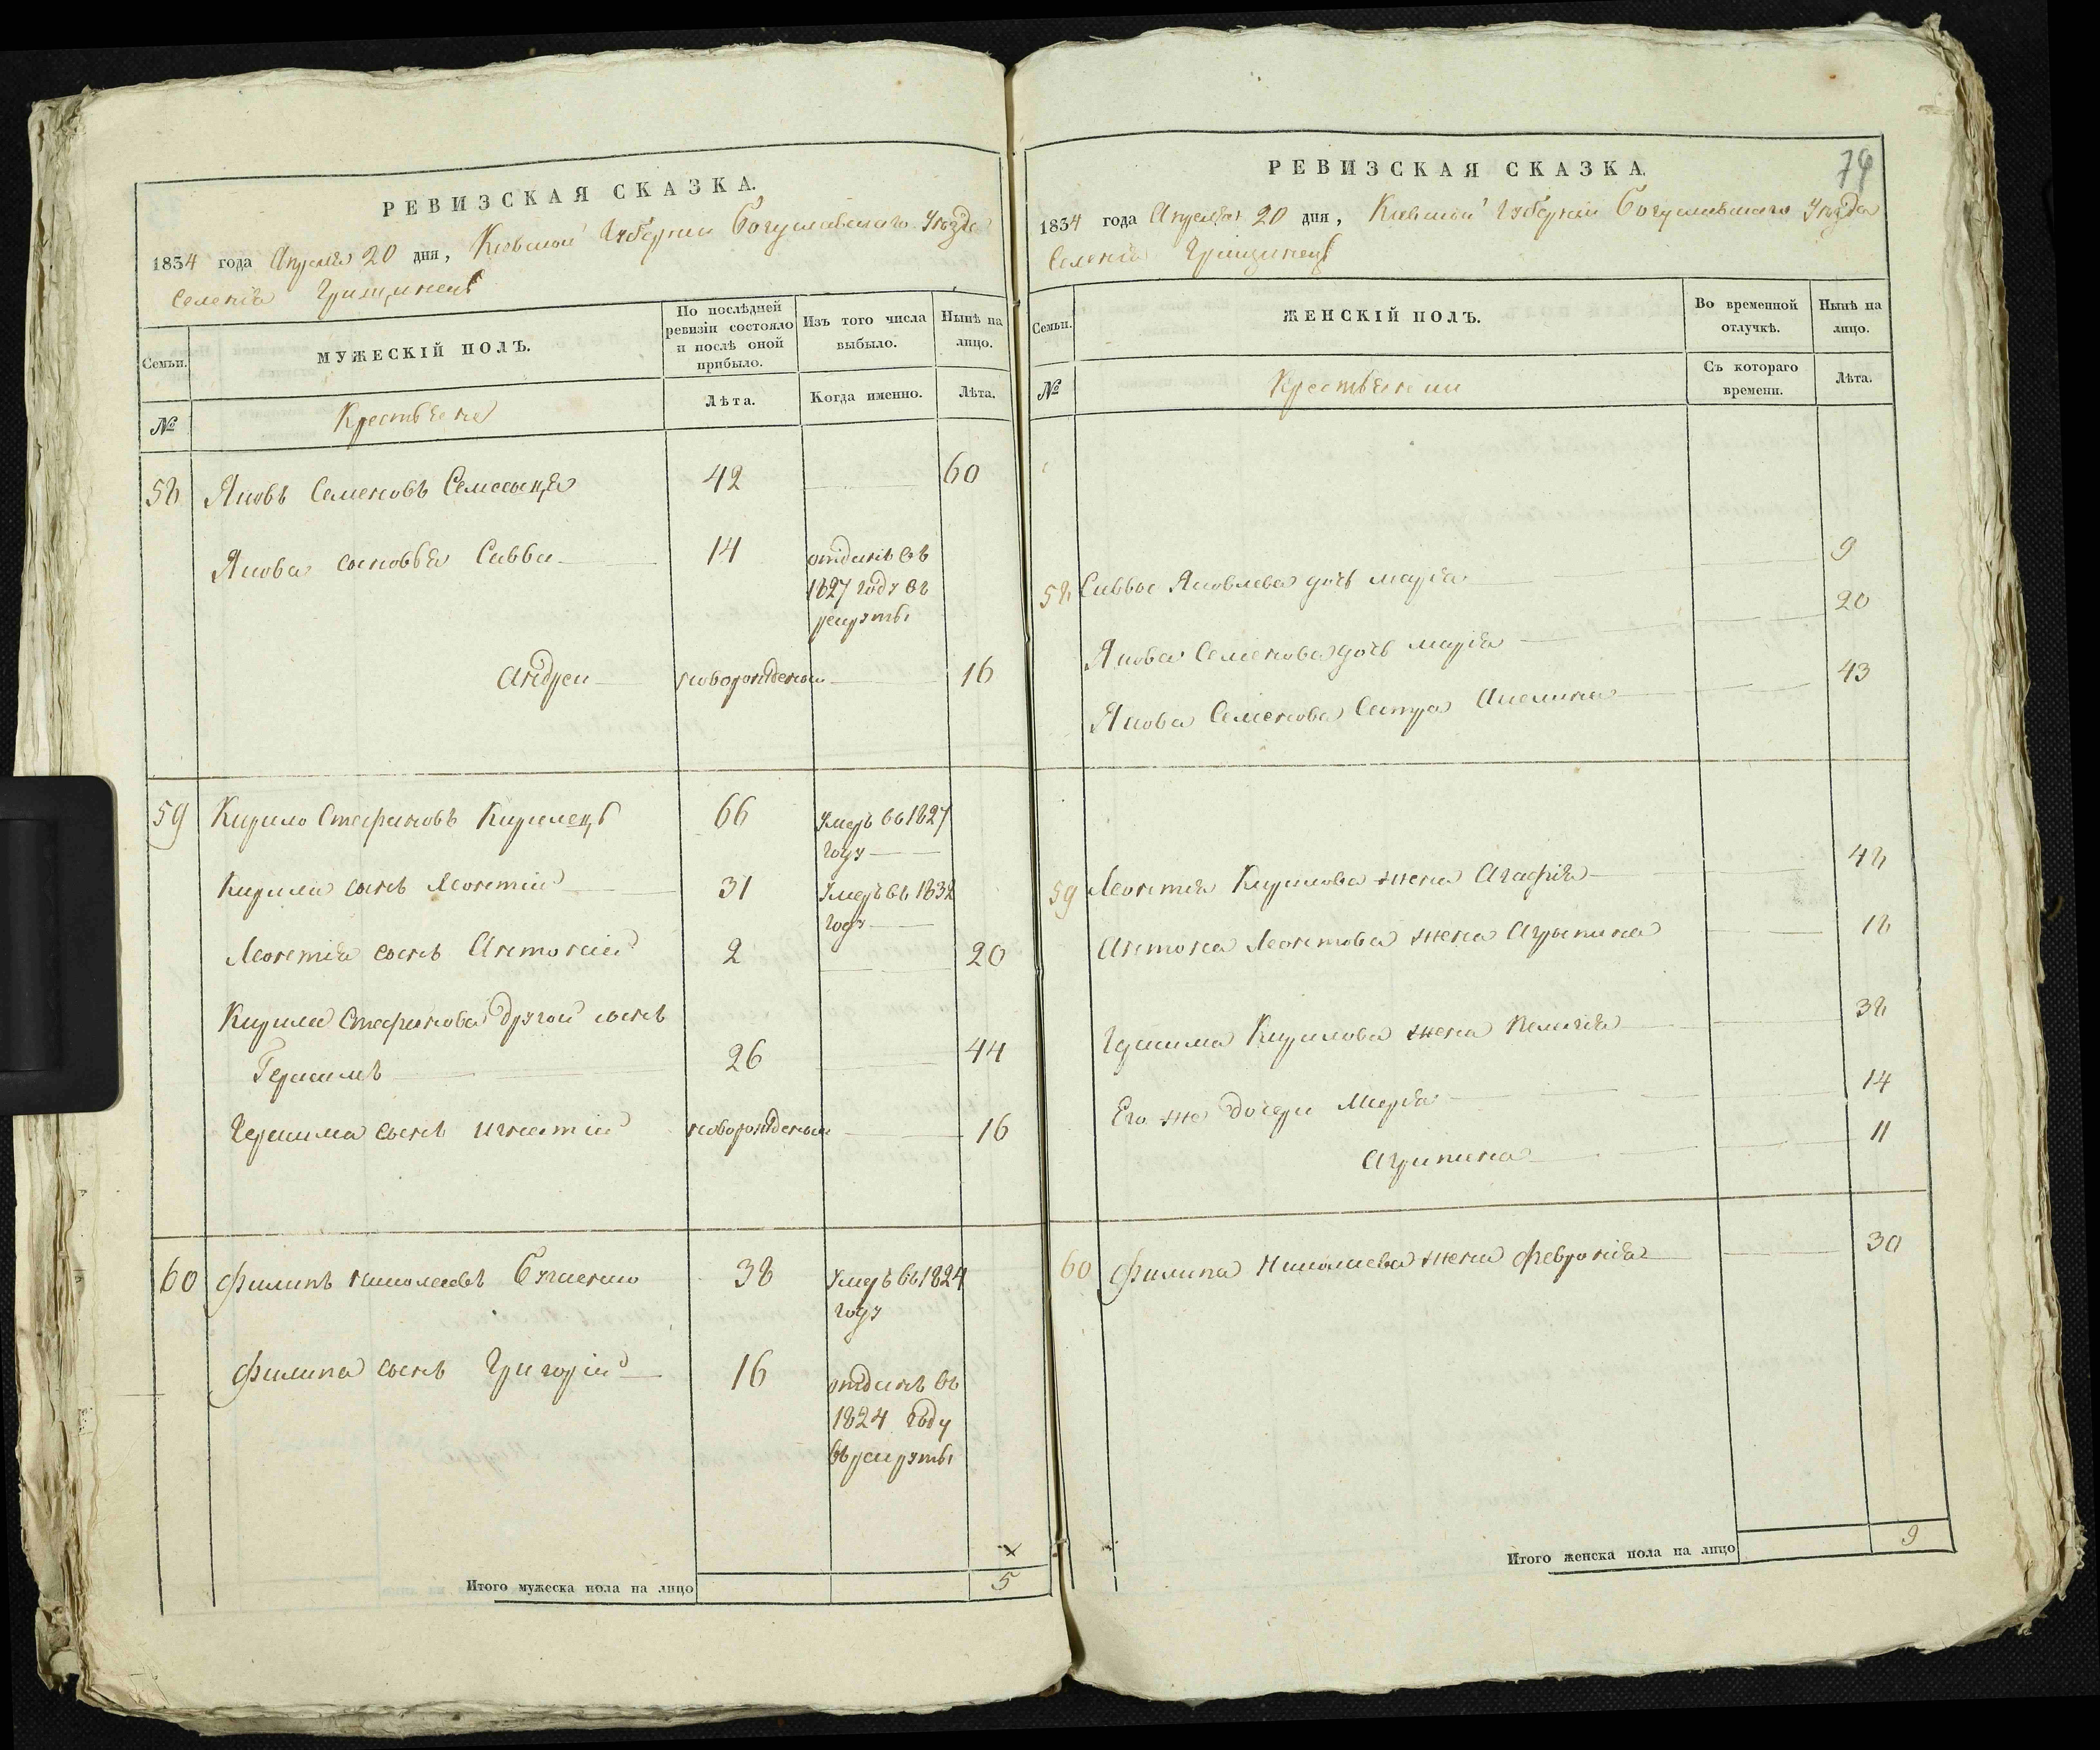 РЕВИЗСКАЯ СКАЗКА.
1834 года Апреля 20 дня, Киевской Губернии Богуславского Уезда
Селенія Грищинецъ
Семьи.
МУЖЕСКІЙ ПОЛЪ.
По послѣдней ревизіи состояло и послѣ оной прибыло.
Изъ того числа выбыло.
Нынѣ на лицо.
№
Крестьяне
Лѣта.
Когда именно.
Лѣта.
58 Яковъ Семеновъ 42 60
Якова сыновья Савва 14 отданъ въ
1827 году въ
рекруты
Андрей новорожденый 16
59 Кирило Стефановъ Кирилецъ 66 Умеръ въ 1827
году
Кирила сынъ Леонтій 31 Умеръ въ 1832
году
Леонтія сынъ Антоній 2 20
Кирила Стефанова другой сынъ
Герасимъ 26 44
Герасима сынъ Игнатій новорожденый 16
60 Филипъ Николаевъ 38 Умеръ въ 1824
году
Филипа сынъ Григорій 16 отданъ въ
1824 году
въ рекруты
Итого мужеска пола на лицо 5
74
РЕВИЗСКАЯ СКАЗКА.
1834 года Апреля 20 дня, Киевской Губерніи Богуславскаго Уезда
Селенія Грищинецъ
Семьи.
ЖЕНСКІЙ ПОЛЪ.
Во временной отлучкѣ.
Нынѣ на лицо.
№
Крестьянки
Съ котораго времени.
Лѣта.
58 Саввы Яковлева дочь Марія 9
Якова Семенова дочь Марія 20
Якова Семенова Сестра Акелина 43
59 Леонтія Кирилова жена Агафія 48
Антона Леонтова жена Агрыпина 18
Герасима Кирилова жена Пелагія 38
Его же дочери Марія 14
Агрипина 11
60 Филипа Николаева жена Февронія 30
Итого женска пола на лицо 9